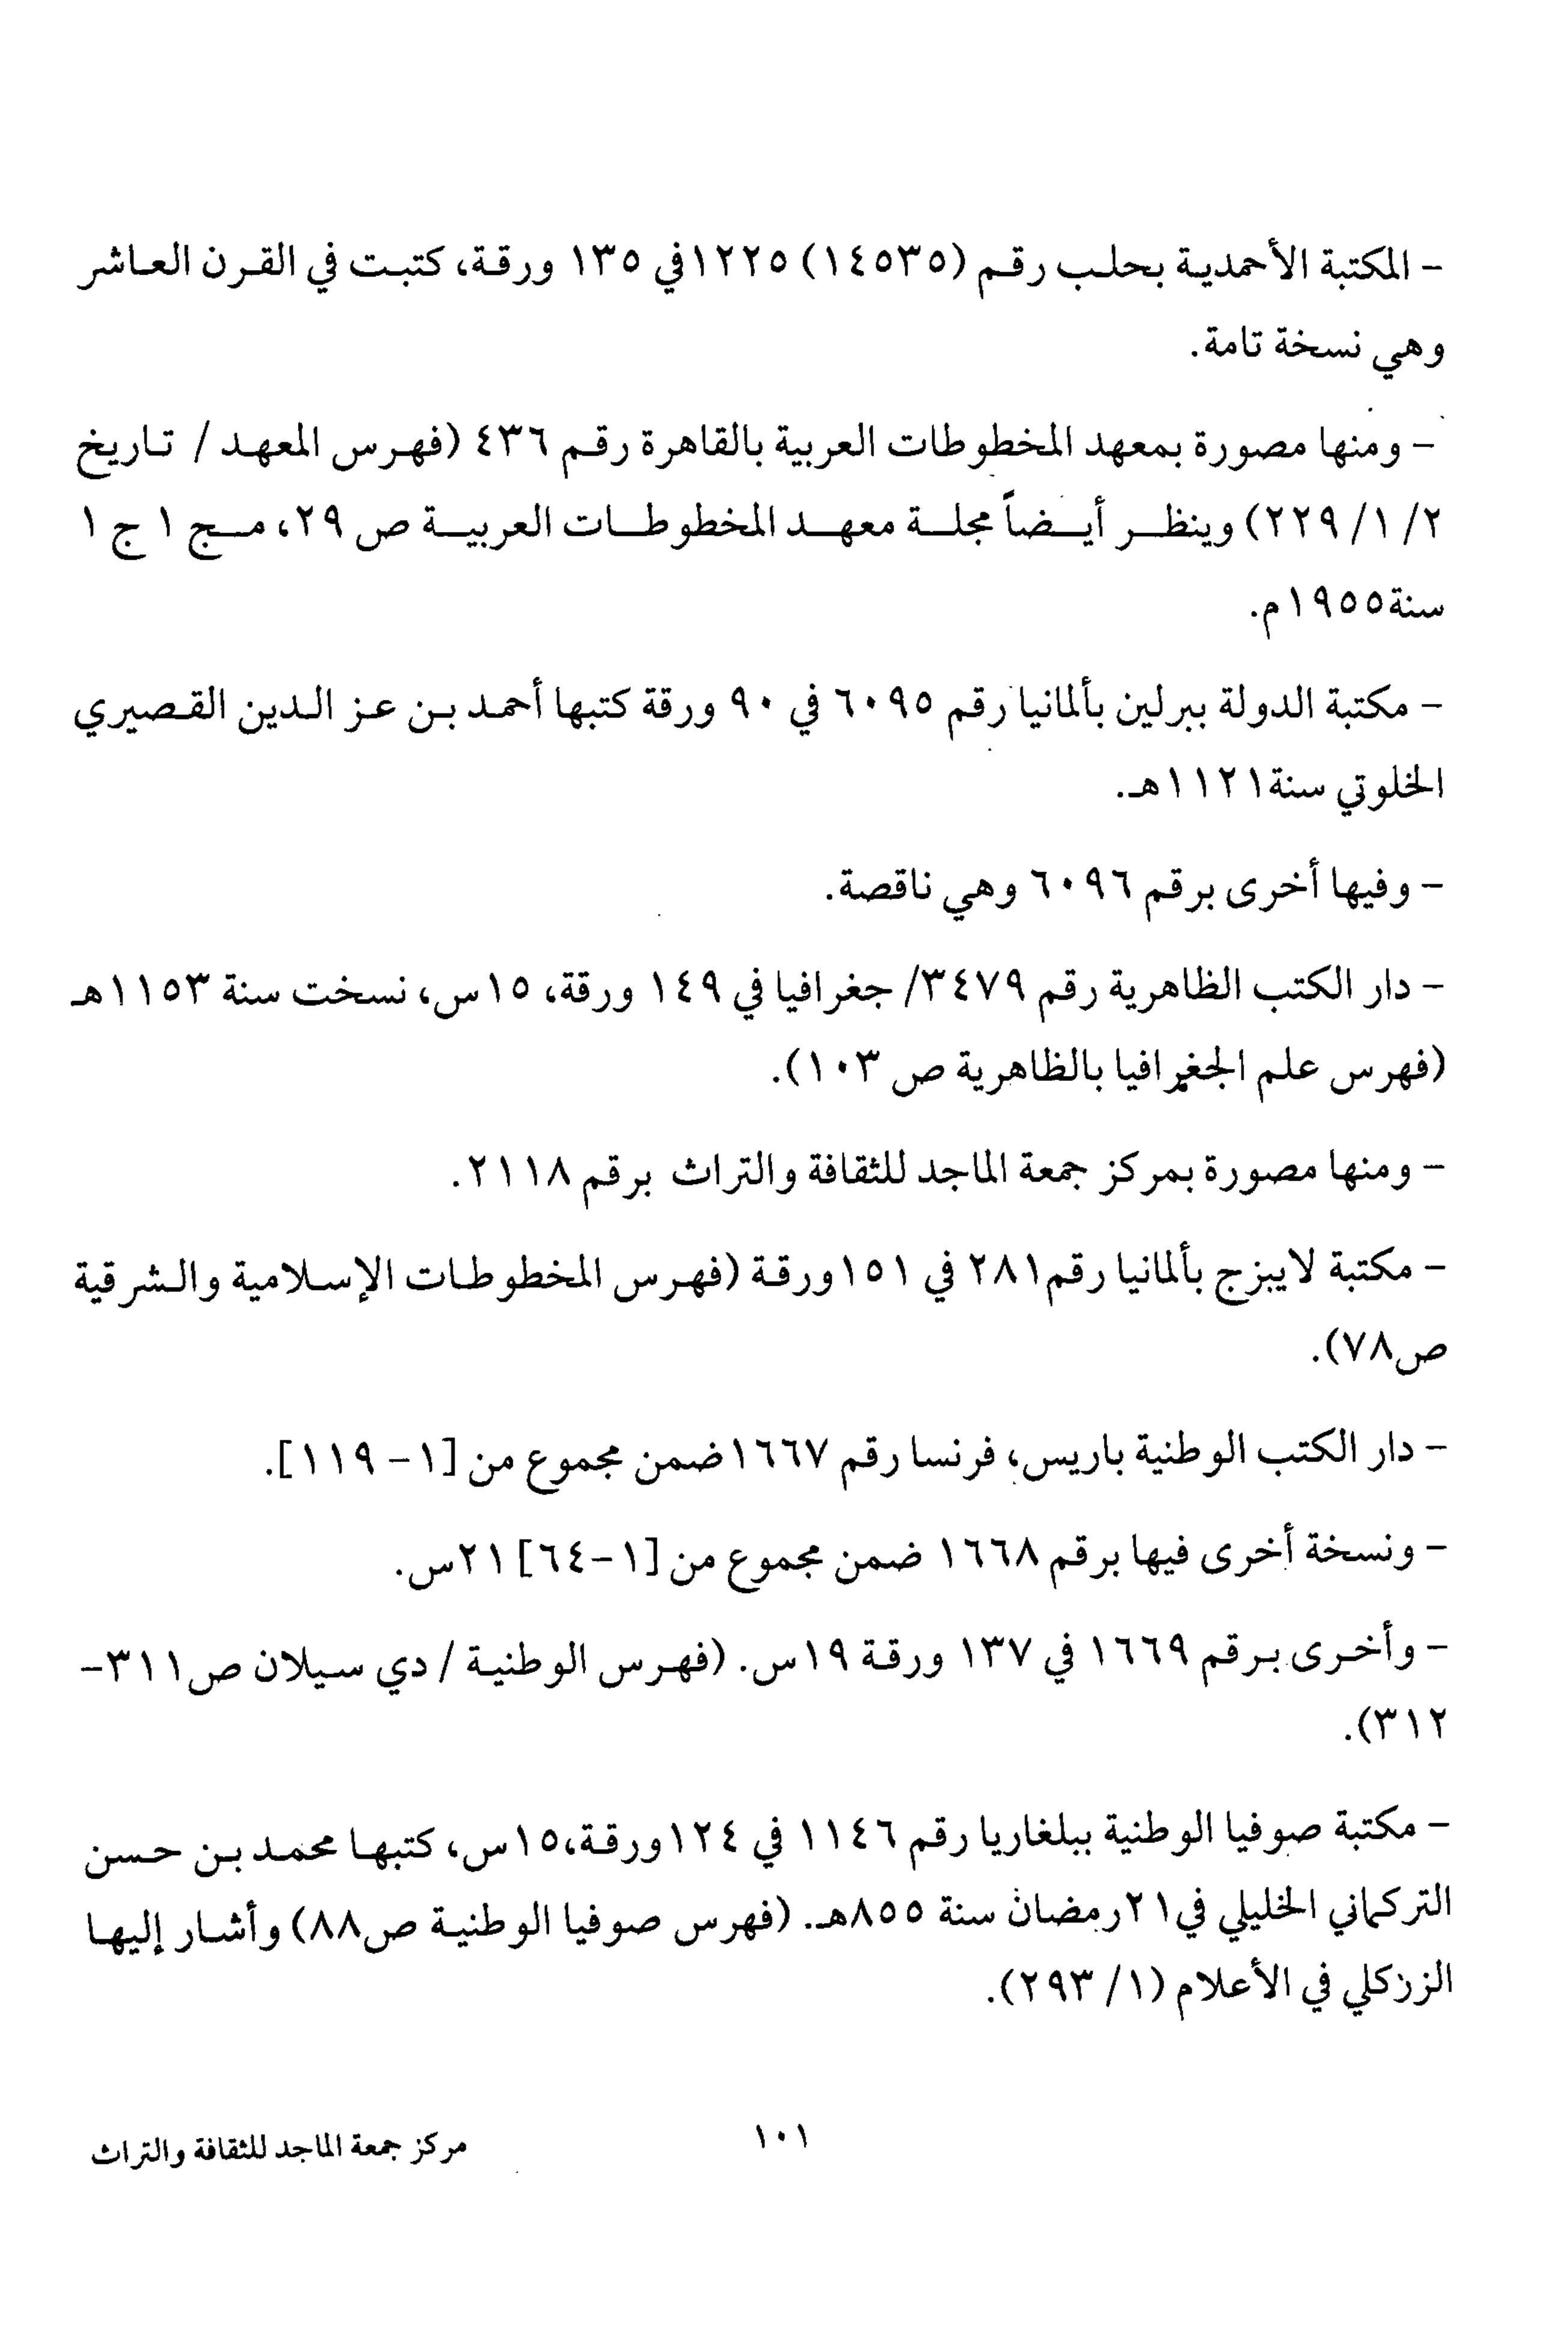 – المكتبة الأحمدية بحلب رقم (١٤٥٣٥) ١٢٢٥في ١٣٥ ورقة، كتبت في القرن العاشر
وهي نسخة تامة.
– ومنها مصورة بمعهد المخطوطات العربية بالقاهرة رقم ٤٣٦ (فهرس المعهد / تاريخ
٢/ ١/ ٢٢٩) وينظر أيضاً مجلة معهد المخطوطات العربية ص ٢٩، مج ١ ج ١
سنة١٩٥٥م.
– مكتبة الدولة ببرلين بألمانيا رقم ٦٠٩٥ في ٩٠ ورقة كتبها أحمد بن عز الدين القصيري
الخلوتي سنة١١٢١هـ.
– وفيها أخرى برقم ٦٠٩٦ وهي ناقصة.
– دار الكتب الظاهرية رقم ٣٤٧٩/ جغرافيا في ١٤٩ ورقة، ١٥س، نسخت سنة ١١٥٣هـ
(فهرس علم الجغرافيا بالظاهرية ص ١٠٣).
– ومنها مصورة بمركز جمعة الماجد للثقافة والتراث برقم ٢١١٨.
– مكتبة لايبزج بألمانيا رقم٢٨١ في ١٥١ورقة (فهرس المخطوطات الإسلامية والشرقية
ص٧٨).
– دار الكتب الوطنية باريس، فرنسا رقم ١٦٦٧ضمن مجموع من [١– ١١٩].
– ونسخة أخرى فيها برقم ١٦٦٨ ضمن مجموع من [١–٦٤] ٢١س.
– وأخرى برقم ١٦٦٩ في ١٣٧ ورقة ١٩س. (فهرس الوطنية / دي سيلان ص٣١١–
٣١٢).
– مكتبة صوفيا الوطنية ببلغاريا رقم ١١٤٦ في ١٢٤ورقة،١٥س، كتبها محمد بن حسن
التركماني الخليلي في٢١رمضان سنة ٨٥٥هـ. (فهرس صوفيا الوطنية ص٨٨) وأشار إليها
الزركلي في الأعلام (١/ ٢٩٣).
١٠١
مركز جمعة الماجد للثقافة والتراث